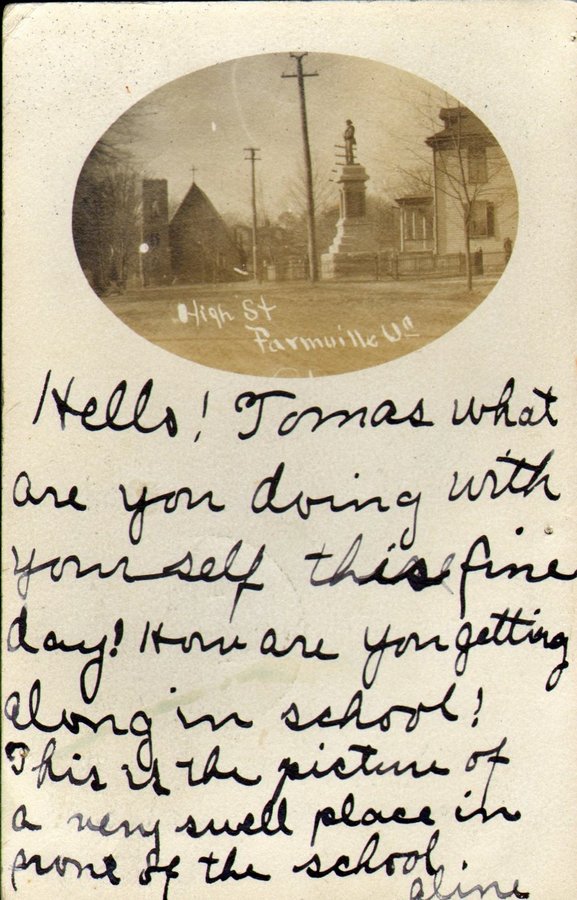 High St
Farmville Va
Hello! Tomas what
are you doing with
yourself this fine
day! How are you getting
along in school!
This is the picture of
a very swell place in
prone of the school.
aline